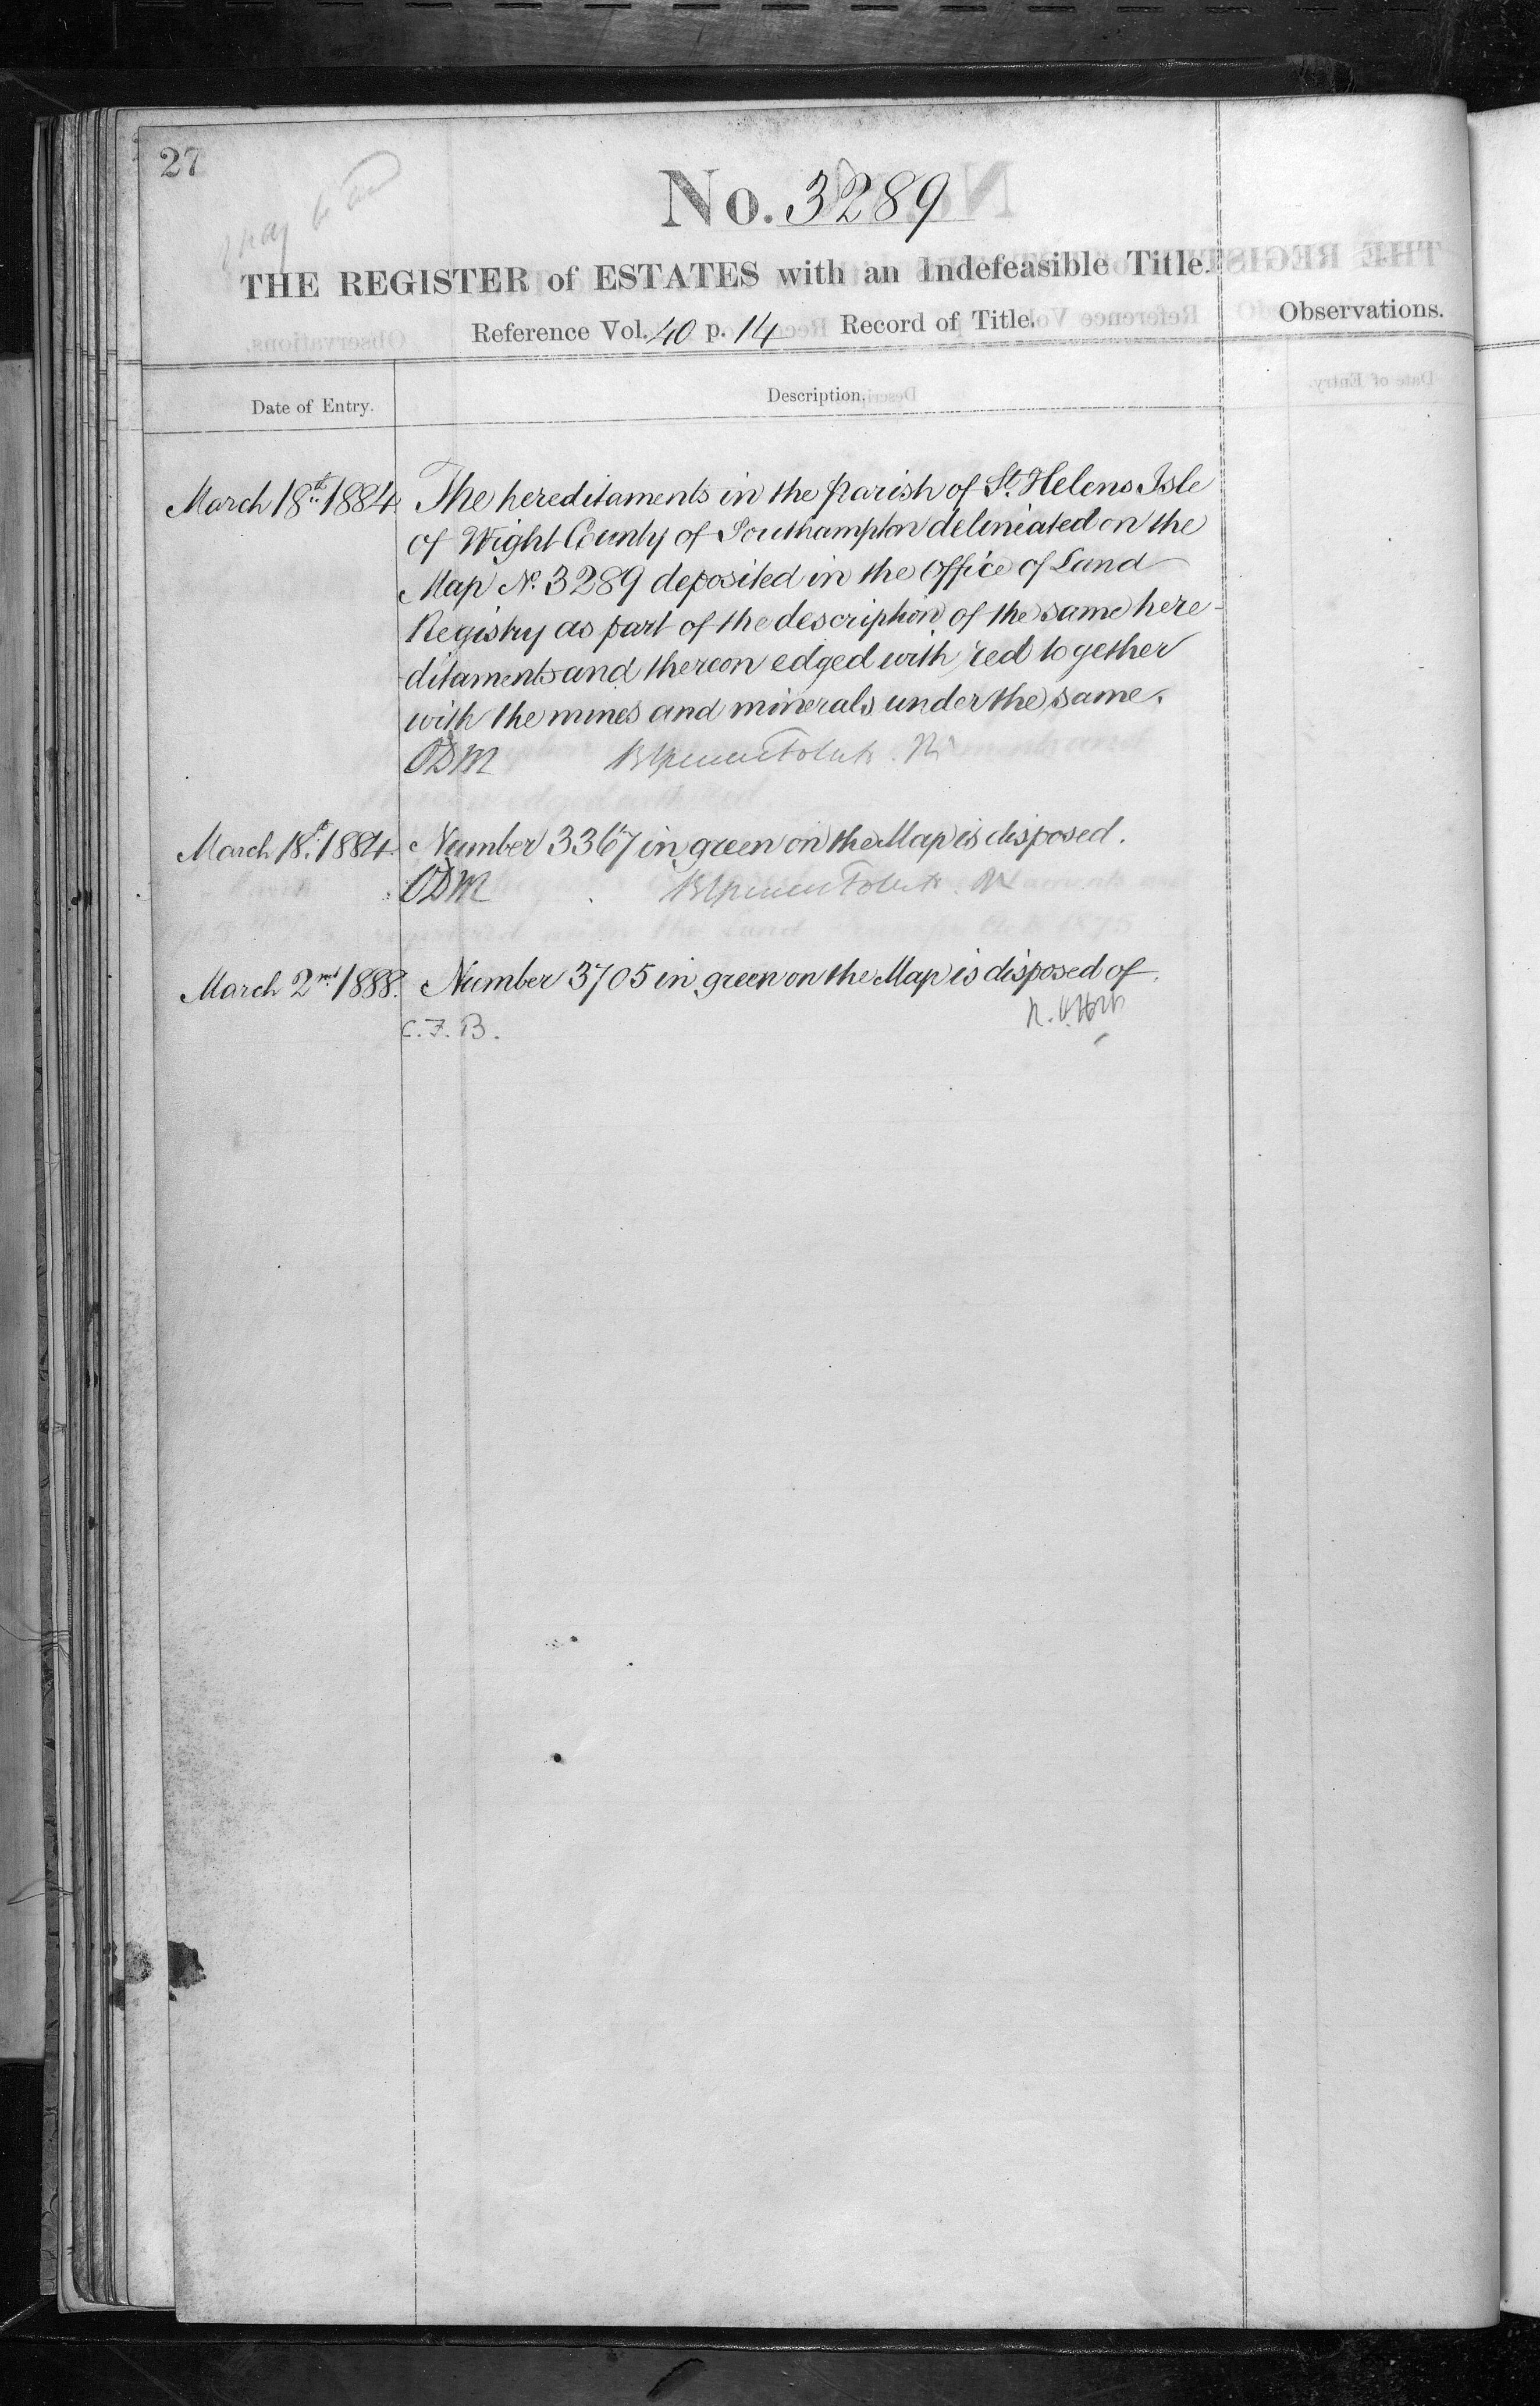 27
No. 3289
THE REGISTER of ESTATES with an Indefeasible Title.
Reference Vol. 40 p. 14 Record of Title.
Observations.
Date of Entry.
Description.
March 18th 1884. The hereditaments in the parish of St. Helens Isle
of Wight County of Southampton delineated on the
Map No. 3289 deposited in the Office of Land
Registry as part of the description of the same here-
ditaments and thereon edged with red together
with the mines and minerals under the same.
ODM
March 18th 1884. Number 3367 in green on the Map is disposed.
ODM
March 2nd 1888. Number 3705 in green on the Map is disposed of.
C.F.B.